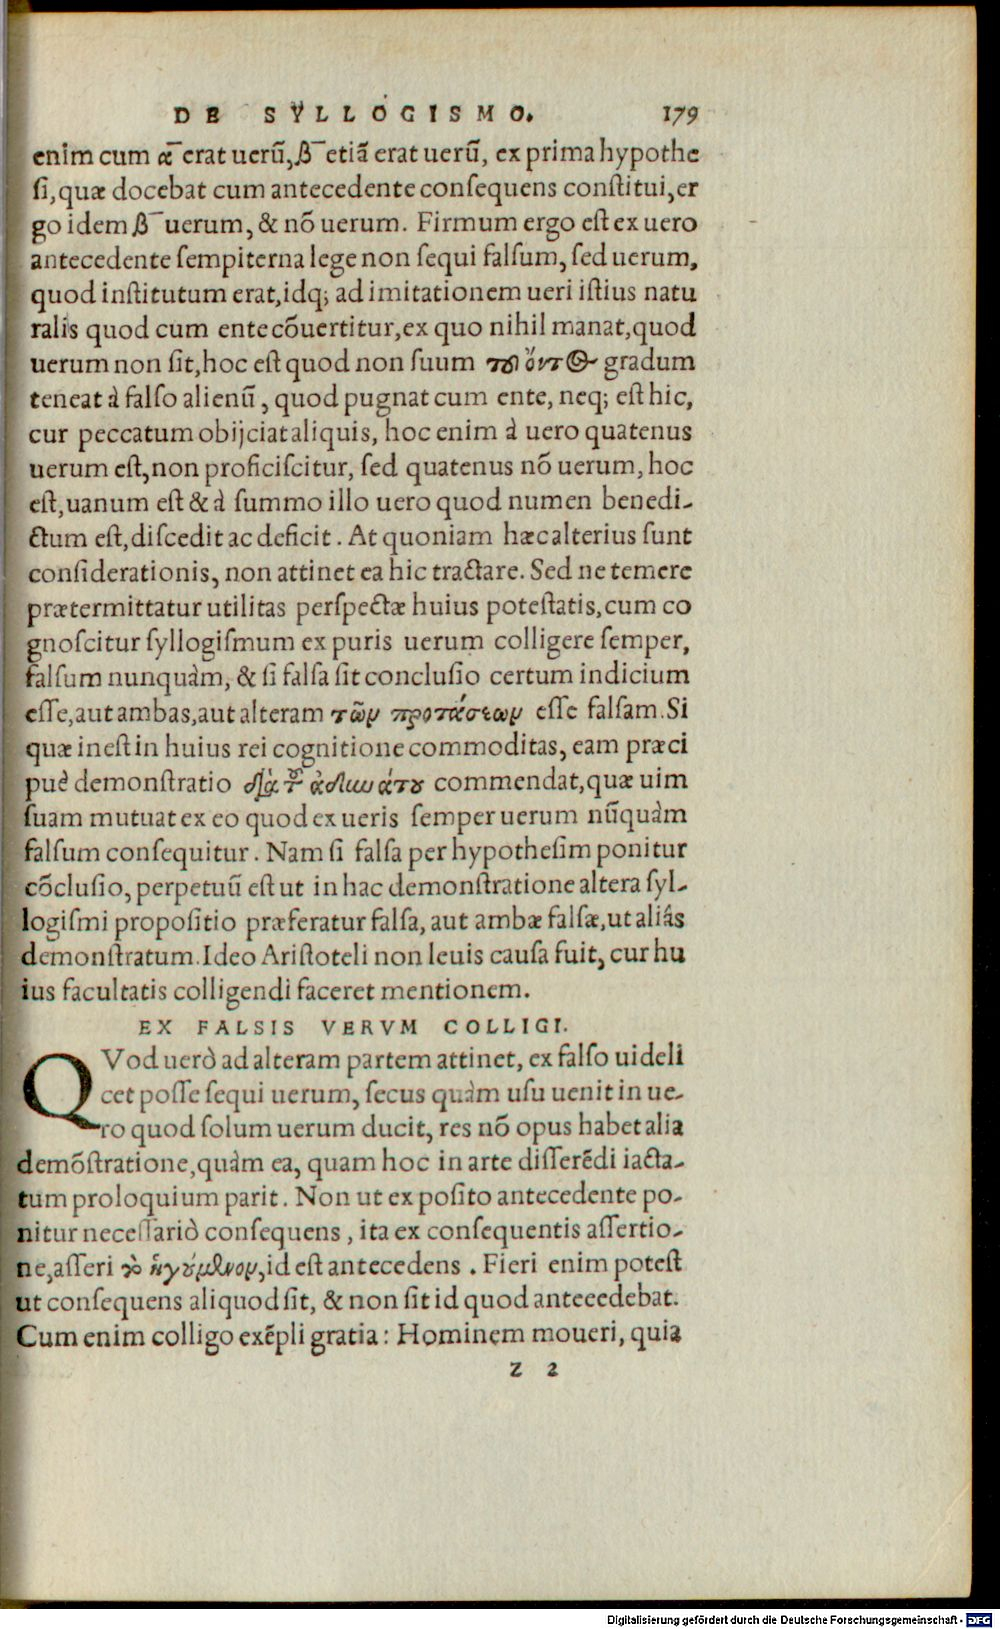 DE SYLLOGISMO. 179
enim cum α̅ erat uerũ, β̅ etiã erat uerũ, ex prima hypothe
si, quæ docebat cum antecedente consequens constitui, er
go idem β̅ uerum, & nõ uerum. Firmum ergo est ex uero
antecedente sempiterna lege non sequi falsum, sed uerum,
quod institutum erat, idq; ad imitationem ueri istius natu
ralis quod cum ente cõuertitur, ex quo nihil manat, quod
uerum non sit, hoc est quod non suum τοῦ ὄντος gradum
teneat à falso alienũ, quod pugnat cum ente, neq; est hic,
cur peccatum obijciat aliquis, hoc enim à uero quatenus
uerum est, non proficiscitur, sed quatenus nõ uerum, hoc
est, uanum est & à summo illo uero quod numen benedi-
ctum est, discedit ac deficit. At quoniam hæc alterius sunt
considerationis, non attinet ea hic tractare. Sed ne temere
prætermittatur utilitas perspectæ huius potestatis, cum co
gnoscitur syllogismum ex puris uerum colligere semper,
falsum nunquàm, & si falsa sit conclusio certum indicium
esse, aut ambas, aut alteram τῶν προτάσεων esse falsam. Si
quæ inest in huius rei cognitione commoditas, eam præci
puè demonstratio διὰ τοῦ ἀδυνάτου commendat, quæ uim
suam mutuat ex eo quod ex ueris semper uerum nũquàm
falsum consequitur. Nam si falsa per hypothesim ponitur
cõclusio, perpetuũ est ut in hac demonstratione altera syl-
logismi propositio præferatur falsa, aut ambæ falsæ, ut aliás
demonstratum. Ideo Aristoteli non leuis causa fuit, cur hu
ius facultatis colligendi faceret mentionem.
EX FALSIS VERVM COLLIGI.
QVod uerò ad alteram partem attinet, ex falso uideli
cet posse sequi uerum, secus quàm usu uenit in ue-
ro quod solum uerum ducit, res nõ opus habet alia
demõstratione, quàm ea, quam hoc in arte disserẽdi iacta-
tum proloquium parit. Non ut ex posito antecedente po-
nitur necessariò consequens, ita ex consequentis assertio-
ne, asseri τὸ ἡγούμενον, id est antecedens. Fieri enim potest
ut consequens aliquod sit, & non sit id quod anteeedebat.
Cum enim colligo exẽpli gratia: Hominem moueri, quia
Z 2
Digitalisierung gefördert durch die Deutsche Forschungsgemeinschaft - DFG